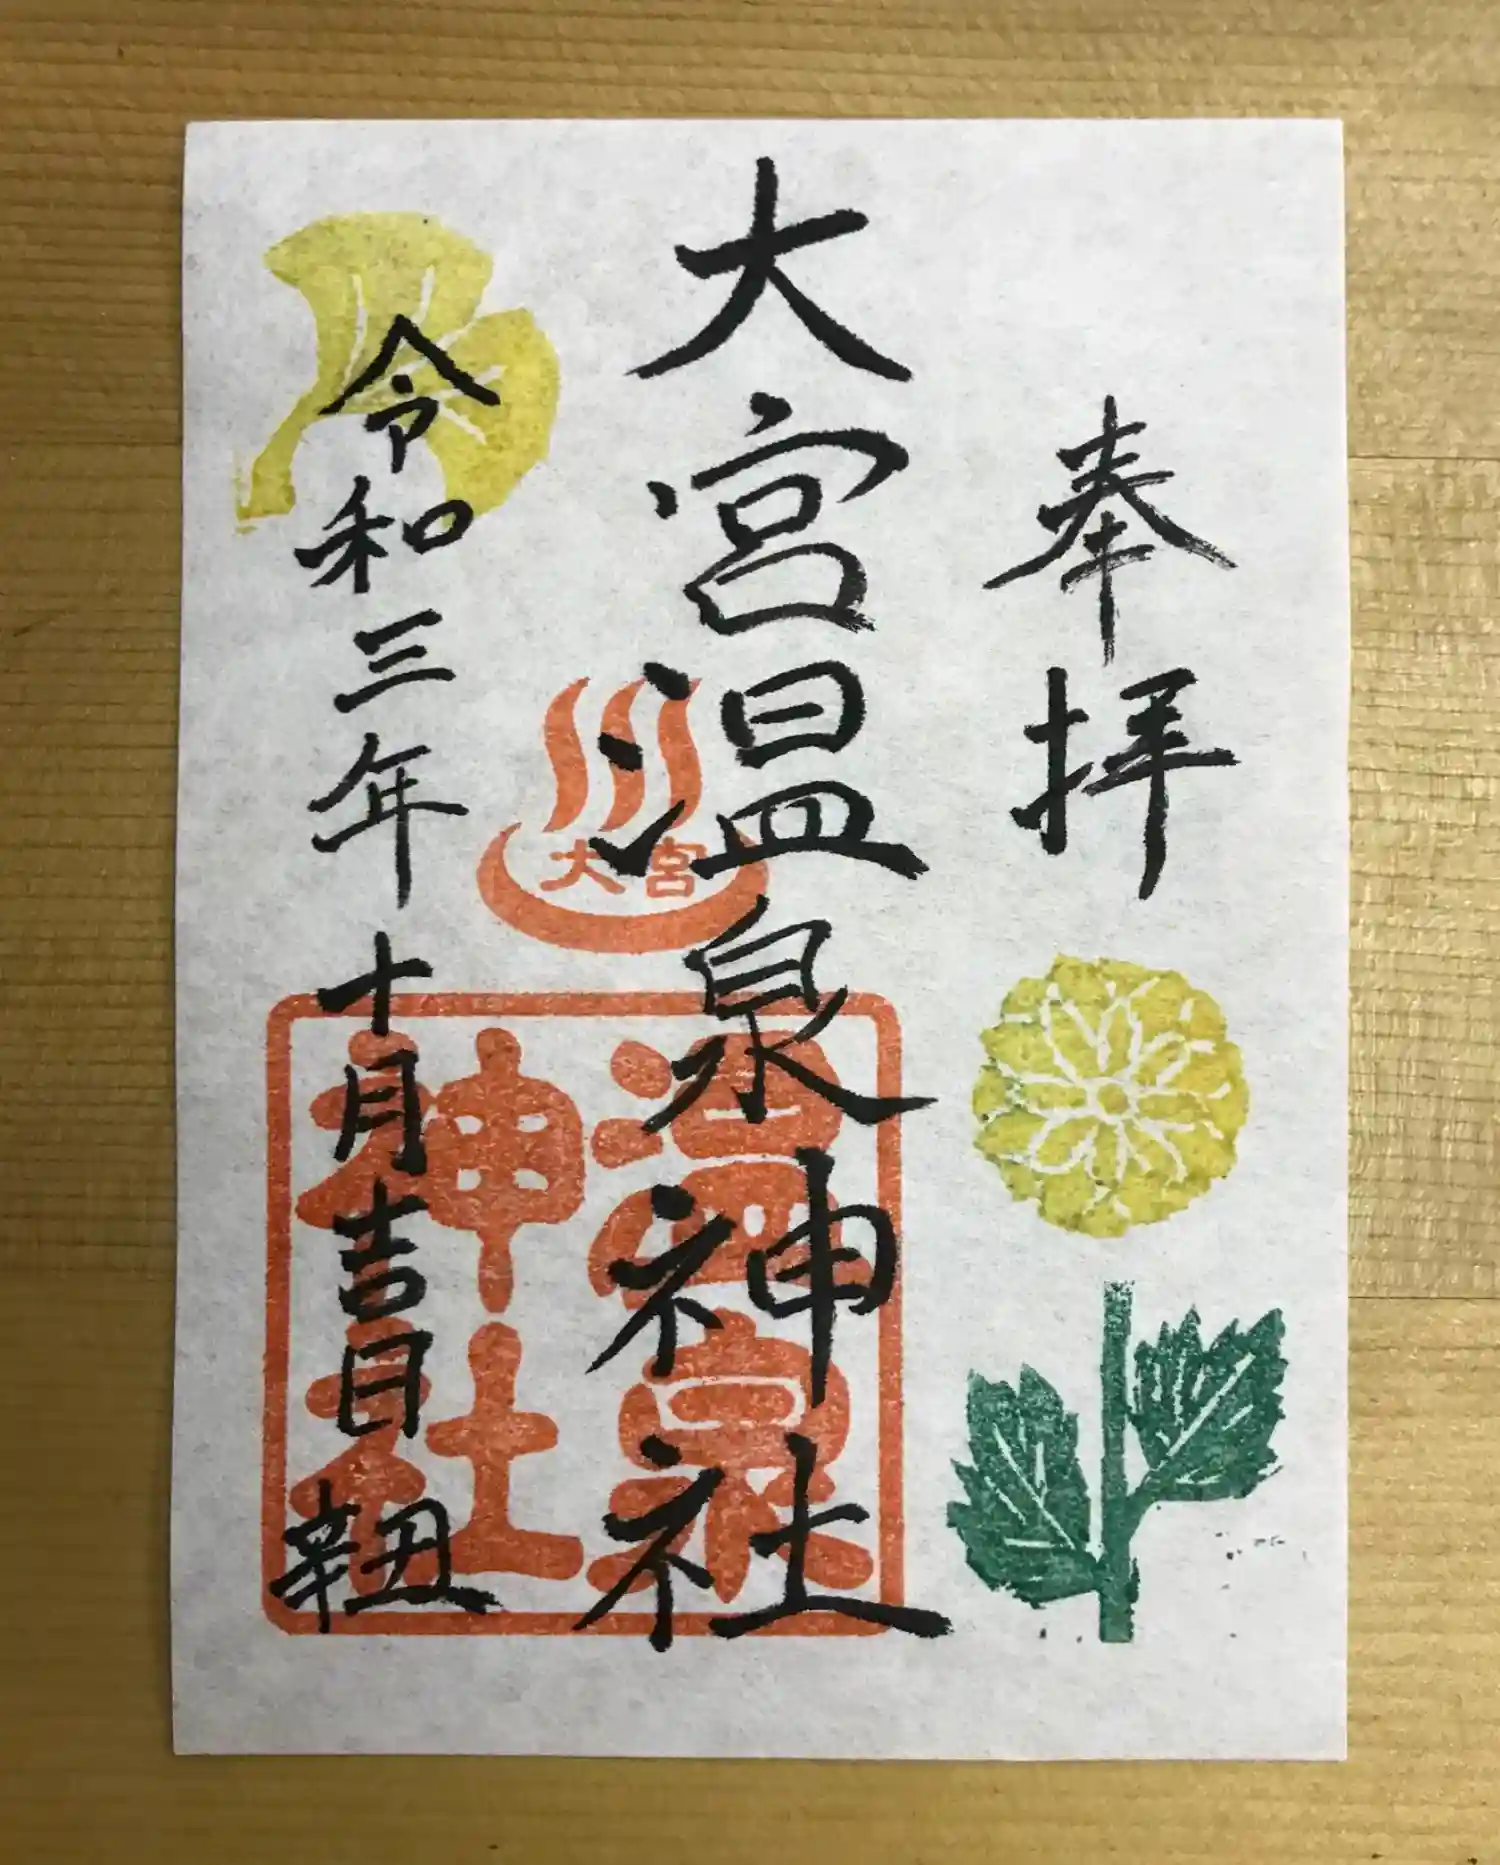 奉拝
大宮温泉神社
大宮
温泉
神社
令和三年十月吉日 辛丑